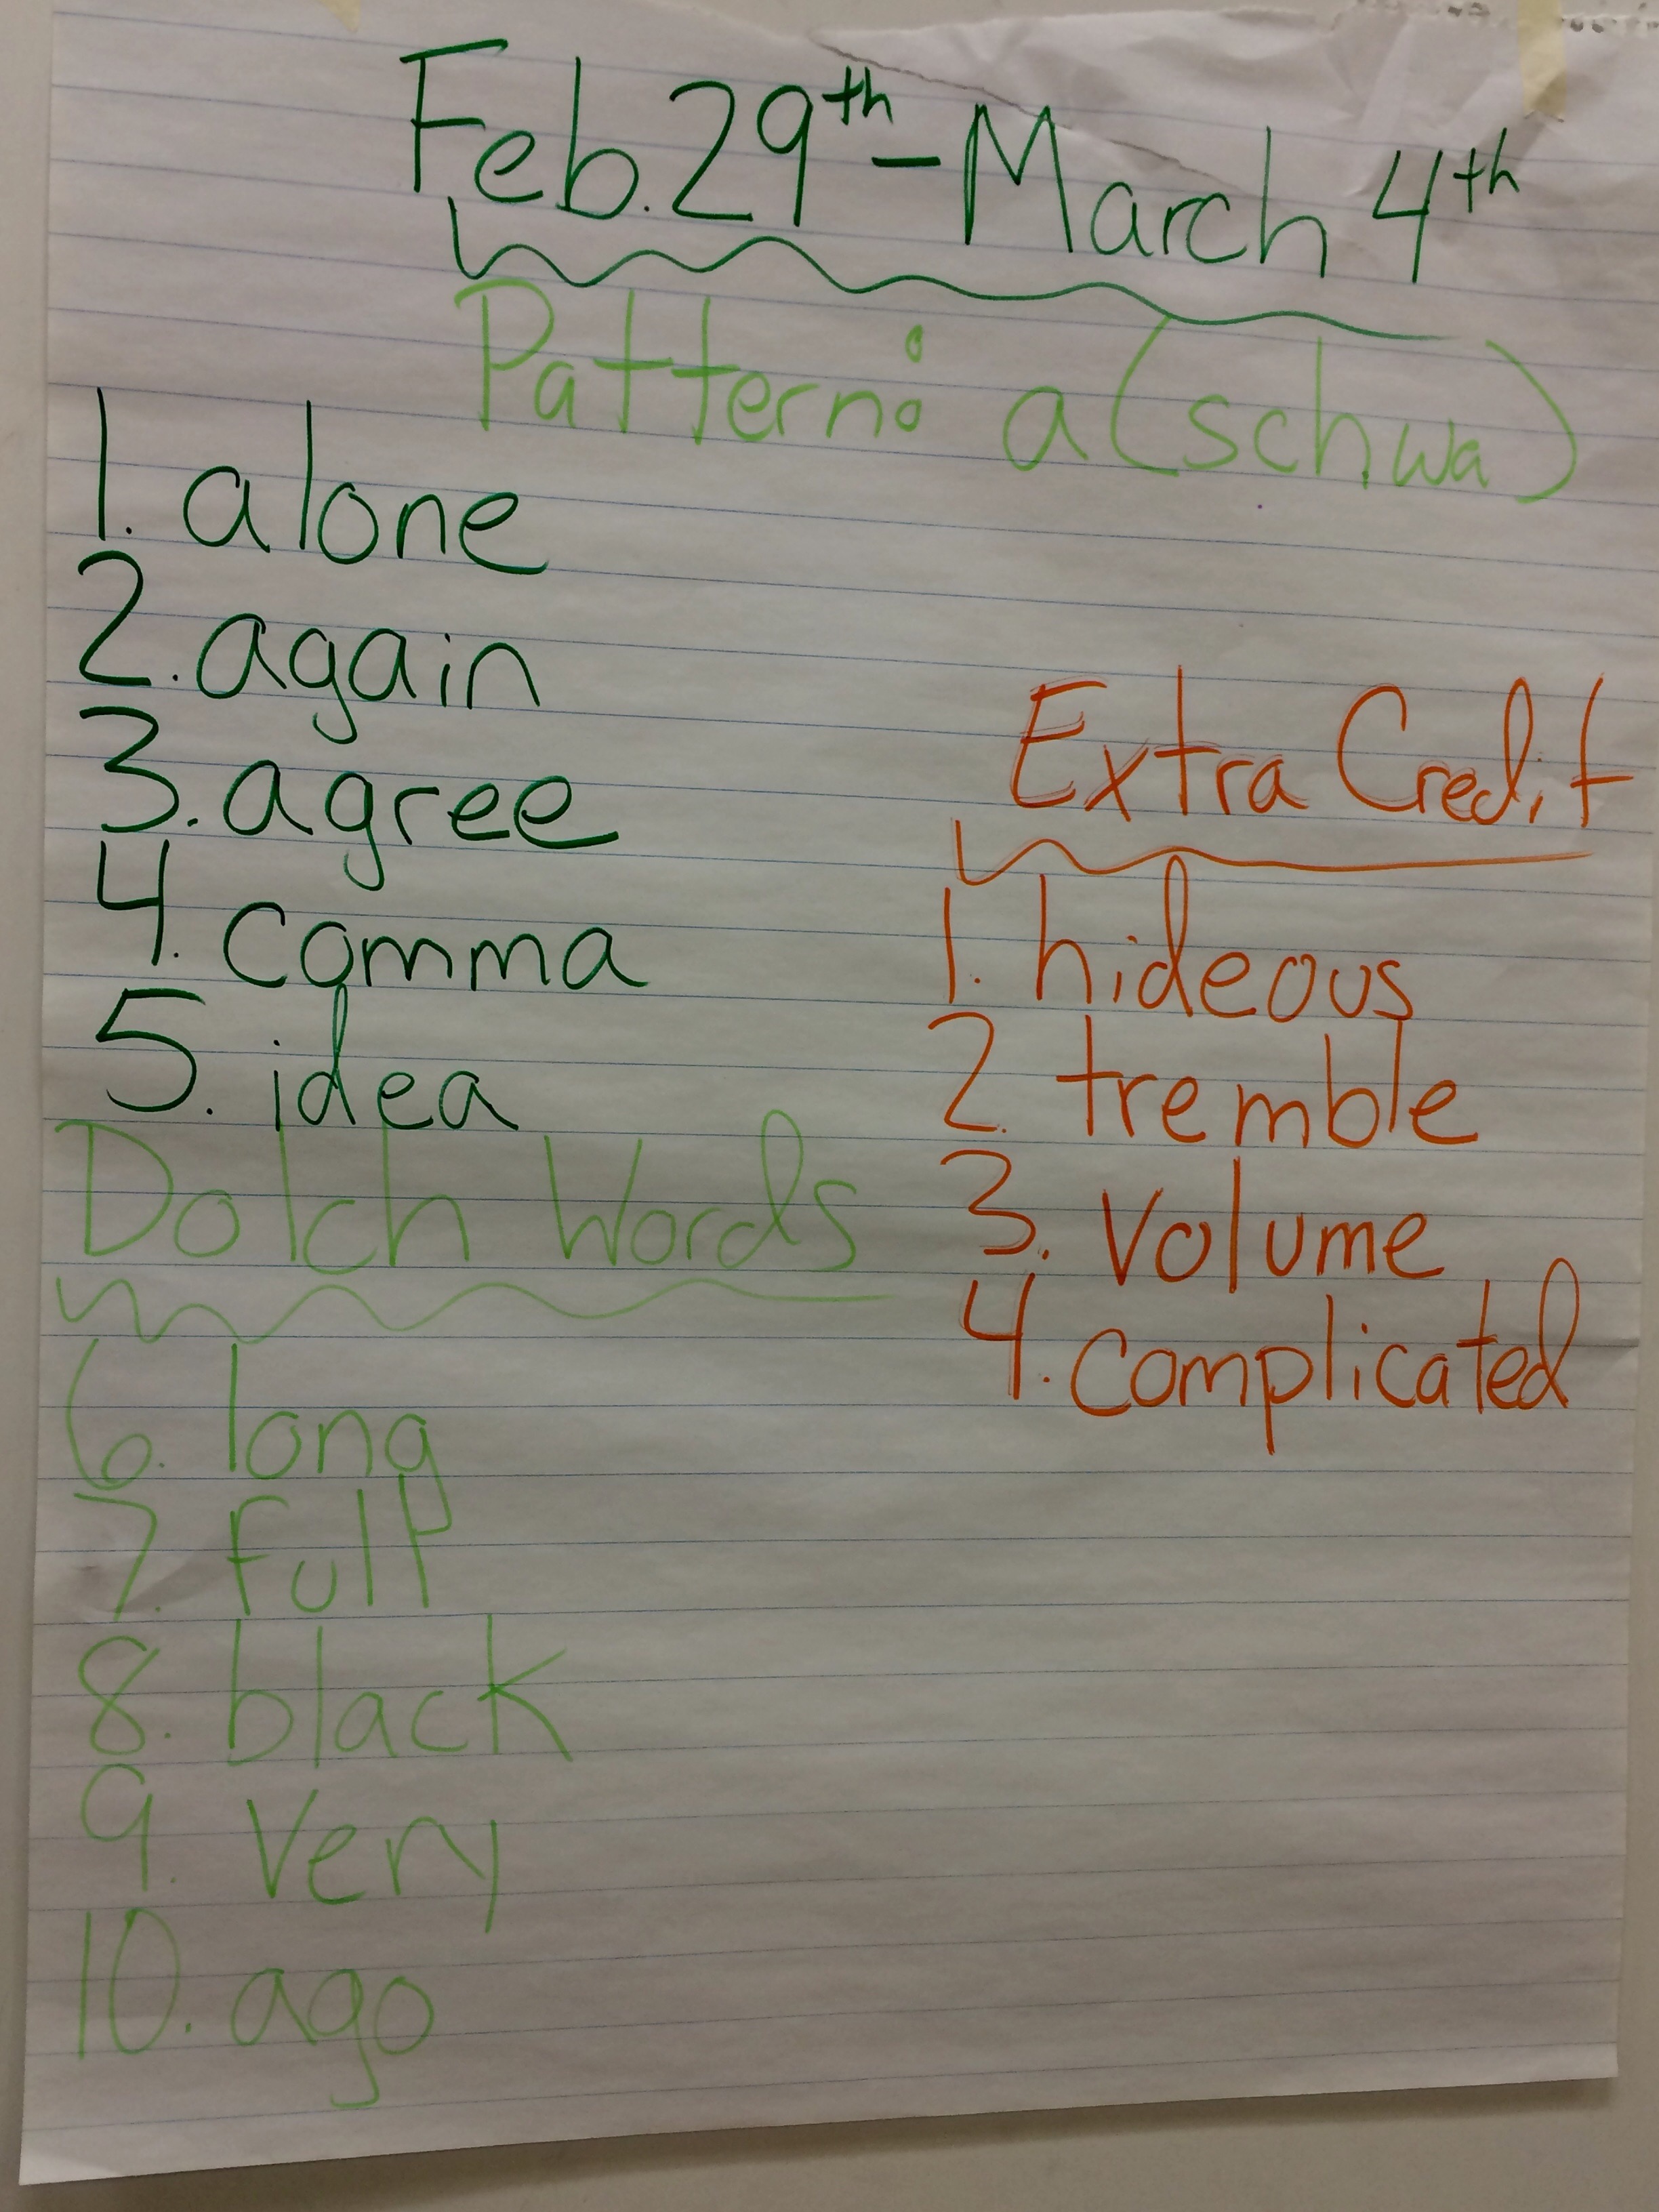 Feb. 29th - March 4th
Pattern: a (schwa)
1. alone
2. again
3. agree
4. comma
5. idea
Dolch Words
6. long
7. full
8. black
9. Very
10. ago
Extra Credit
1. hideous
2. tremble
3. Volume
4. complicated